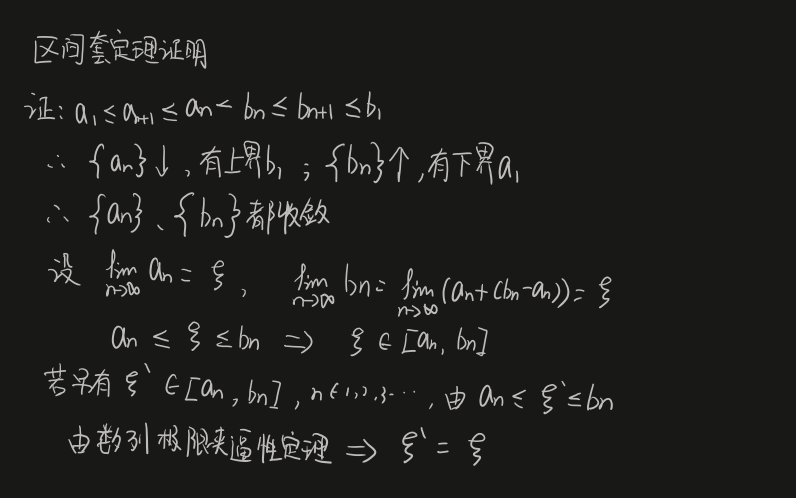 区间套定理证明
证: a₁ ≤ aₙ₊₁ ≤ aₙ < bₙ ≤ bₙ₊₁ ≤ b₁
∴ {aₙ}↓, 有上界b₁ ; {bₙ}个, 有下界a₁
∴ {aₙ}、{bₙ}都收敛
设 lim n→∞ aₙ = ξ, lim n→∞ bₙ = lim n→∞ (aₙ+(bₙ-aₙ)) = ξ
aₙ ≤ ξ ≤ bₙ ⇒ ξ ∈ [aₙ, bₙ]
若另有 ξ` ∈ [aₙ, bₙ], n ∈ 1,2,3⋯, 由 aₙ ≤ ξ` ≤ bₙ
由数列极限夹逼性定理 ⇒ ξ` = ξ